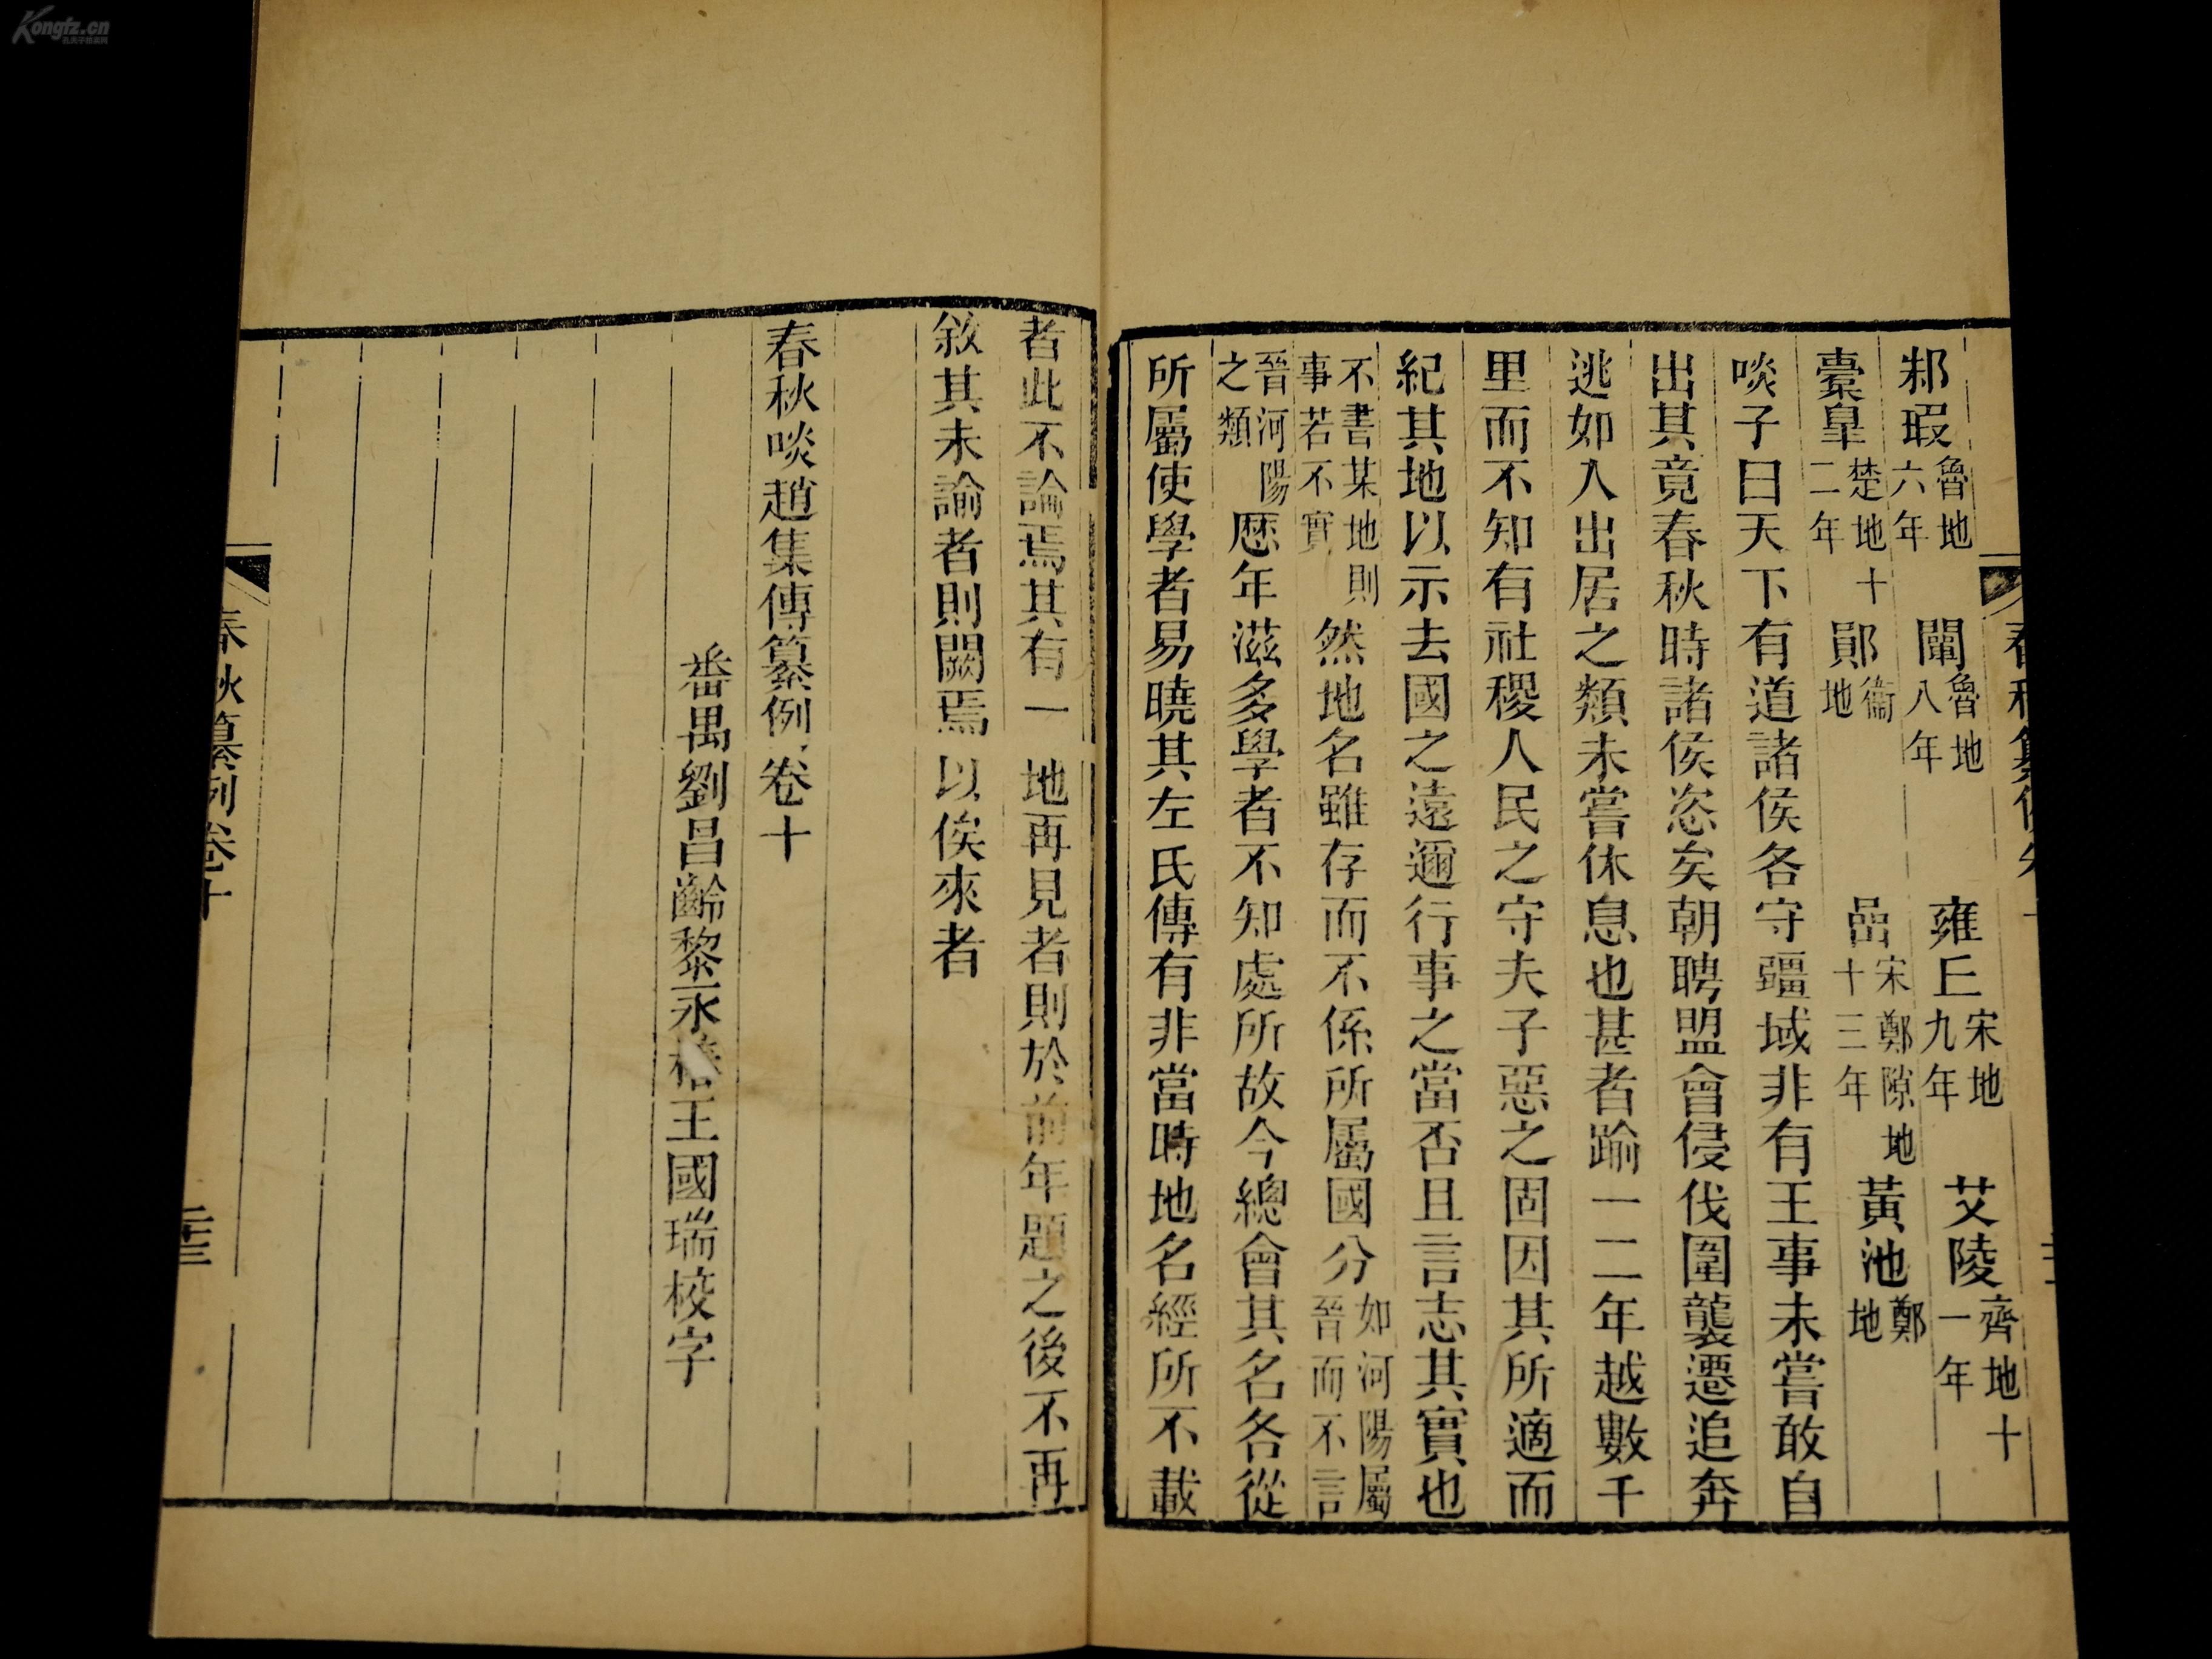 邾瑕魯地六年 闡魯地八年 雍丘宋地九年 艾陵齊地十一年
橐皐楚地十二年 鄖衞地 嵒宋鄭隙地十三年 黃池鄭地
啖子曰天下有道諸侯各守疆域非有王事未嘗敢自
出其竟春秋時諸侯恣矣朝聘盟會侵伐圍襲遷追奔
逃如入出居之類未嘗休息也甚者踰一二年越數千
里而不知有社稷人民之守夫子惡之固因其所適而
紀其地以示去國之遠邇行事之當否且言志其實也
不書某地則事若不實然地名雖存而不係所屬國分如河陽屬晉而不言
晉河陽之類歷年滋多學者不知處所故今總會其名各從
所屬使學者易曉其左氏傳有非當時地名經所不載
者此不論焉其有一地再見者則於前年題之後不再
敘其未諭者則闕焉以俟來者
春秋啖趙集傳纂例卷十
番禺劉昌齡黎永椿王國瑞校字
春秋纂例卷十
Kongfz.cn